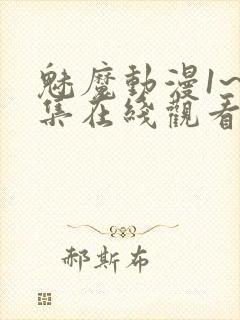 魅魔動漫1~
集在綫觀看
郝斯布